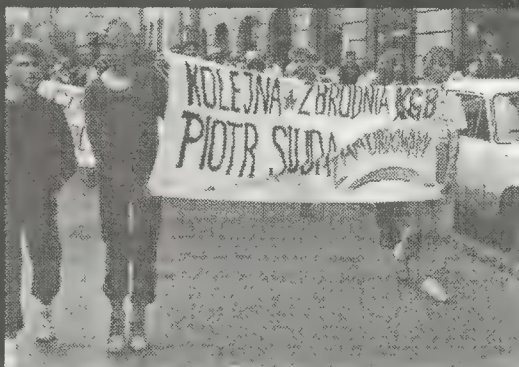 KOLEJNA ★ ZBRODNIA KGB
PIOTR SIUDA ZAMORDOWANY